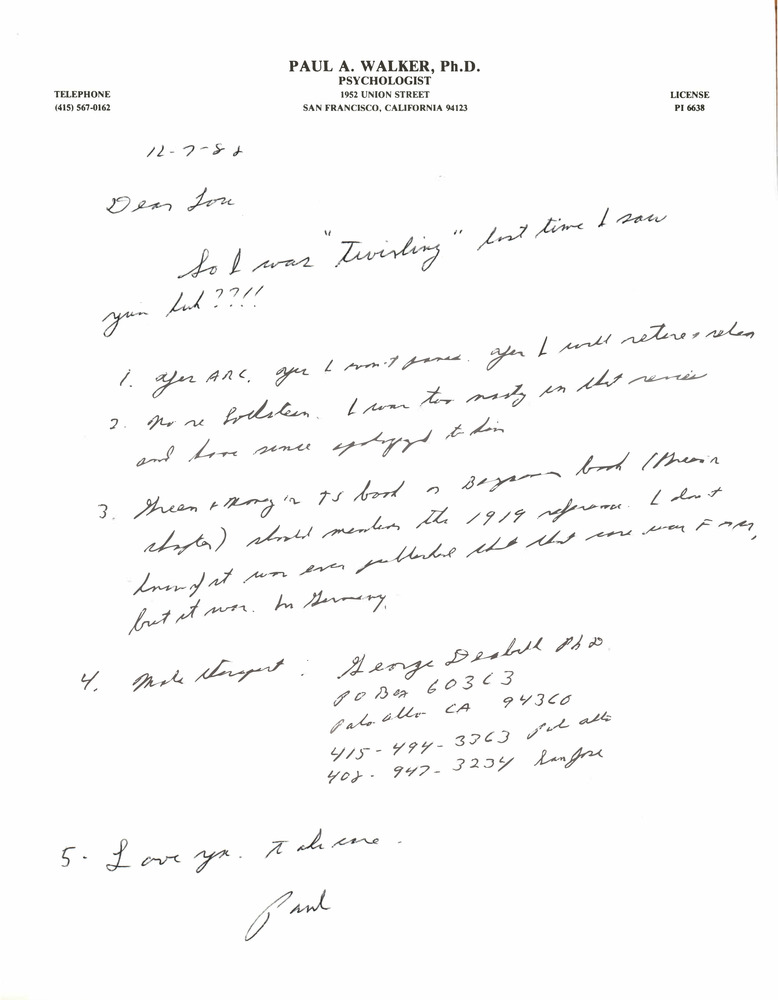 PAUL A. WALKER, Ph.D.
PSYCHOLOGIST
TELEPHONE 1952 UNION STREET LICENSE
(415) 567-0162 SAN FRANCISCO, CALIFORNIA 94123 PI 6638
12-7-88
Dear Lou
So I was "Twirling" last time I saw
you huh??!!
1. ARC. I won't I will
2. No re I was too nasty in that review
and have since to him
3. Green + Money in TS book or book (
chapter) should mention the 1919 reference. I don't
know if it was ever published that that case was F →
but it was. In Germany.
4. Male therapist : George PhD
PO Box
Palo Alto CA
415-494-3363 Palo Alto
408-947-3234 San Jose
5. Love ya. Take care.
Paul